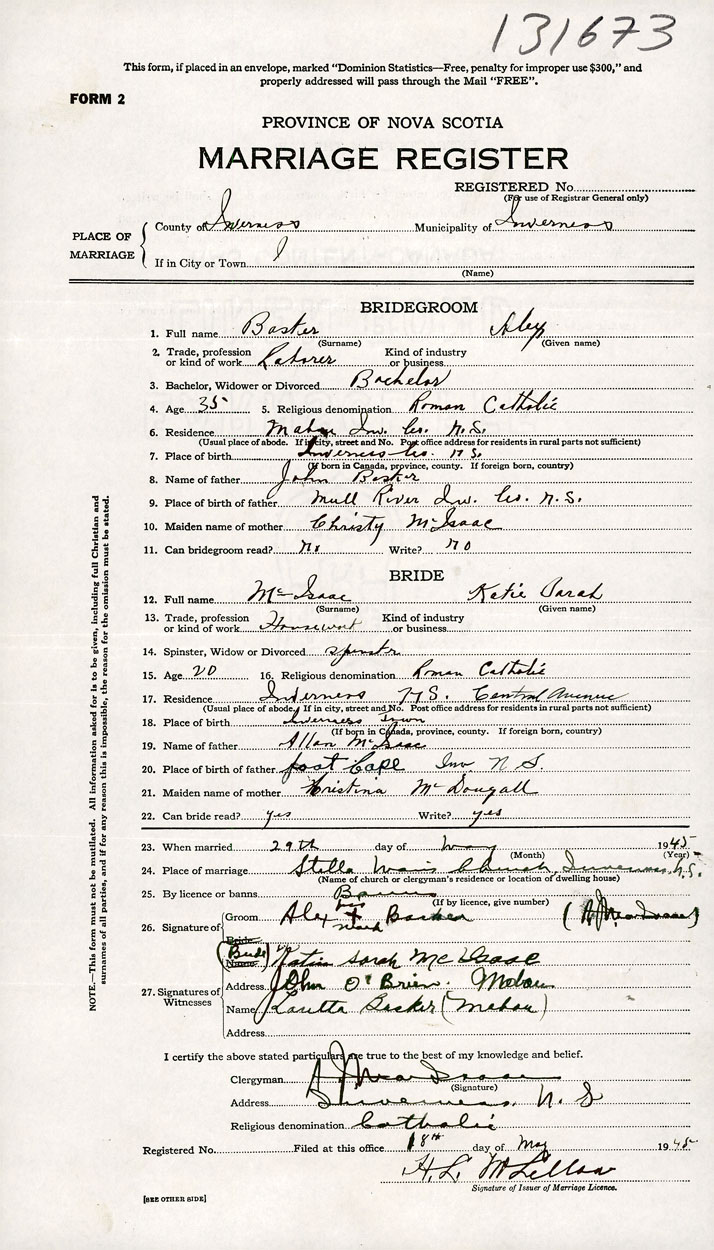 131673
This form, if placed in an envelope, marked "Dominion Statistics—Free, penalty for improper use $300," and
properly addressed will pass through the Mail "FREE".
FORM 2
PROVINCE OF NOVA SCOTIA
MARRIAGE REGISTER
REGISTERED No.
(For use of Registrar General only)
PLACE OF MARRIAGE
County of Inverness Municipality of Inverness
If in City or Town
(Name)
BRIDEGROOM
1. Full name Basker Alex
(Surname) (Given name)
2. Trade, profession or kind of work Laborer Kind of industry or business
3. Bachelor, Widower or Divorced Bachelor
4. Age 35 5. Religious denomination Roman Catholic
6. Residence Mabou Inv. Co. N.S.
(Usual place of abode. If in city, street and No. Post office address for residents in rural parts not sufficient)
7. Place of birth Inverness Co. N.S.
(If born in Canada, province, county. If foreign born, country)
8. Name of father John Basker
9. Place of birth of father Mull River Inv. Co. N.S.
10. Maiden name of mother Christy McIsaac
11. Can bridegroom read? No Write? No
BRIDE
12. Full name McIsaac Katie Sarah
(Surname) (Given name)
13. Trade, profession or kind of work Housework Kind of industry or business
14. Spinster, Widow or Divorced spinster
15. Age 20 16. Religious denomination Roman Catholic
17. Residence Inverness N.S. Central Avenue
(Usual place of abode. If in city, street and No. Post office address for residents in rural parts not sufficient)
18. Place of birth Inverness Town
(If born in Canada, province, county. If foreign born, country)
19. Name of father Allan McIsaac
20. Place of birth of father Cape Inv N S
21. Maiden name of mother Kristina McDougall
22. Can bride read? yes Write? yes
23. When married 29th day of 1945
(Month) (Year)
24. Place of marriage Stella Maris Church, Inverness, N.S.
(Name of church or clergyman's residence or location of dwelling house)
25. By licence or banns Banns
(If by licence, give number)
26. Signature of
Groom Alex his X mark Basker
Bride
(Bride) Name Katie Sarah McIsaac
27. Signatures of Witnesses
Address John O'Brien. Mabou
Name Loretta Basker (Mabou)
Address
I certify the above stated particulars are true to the best of my knowledge and belief.
Clergyman MacIsaac
(Signature)
Address Inverness, N. S
Religious denomination Catholic
Registered No. Filed at this office 18th day of May 1945
H. L. McLellan
Signature of Issuer of Marriage Licence.
[SEE OTHER SIDE]
NOTE.—This form must not be mutilated. All information asked for is to be given, including full Christian and
surnames of all parties, and if for any reason this is impossible, the reason for the omission must be stated.